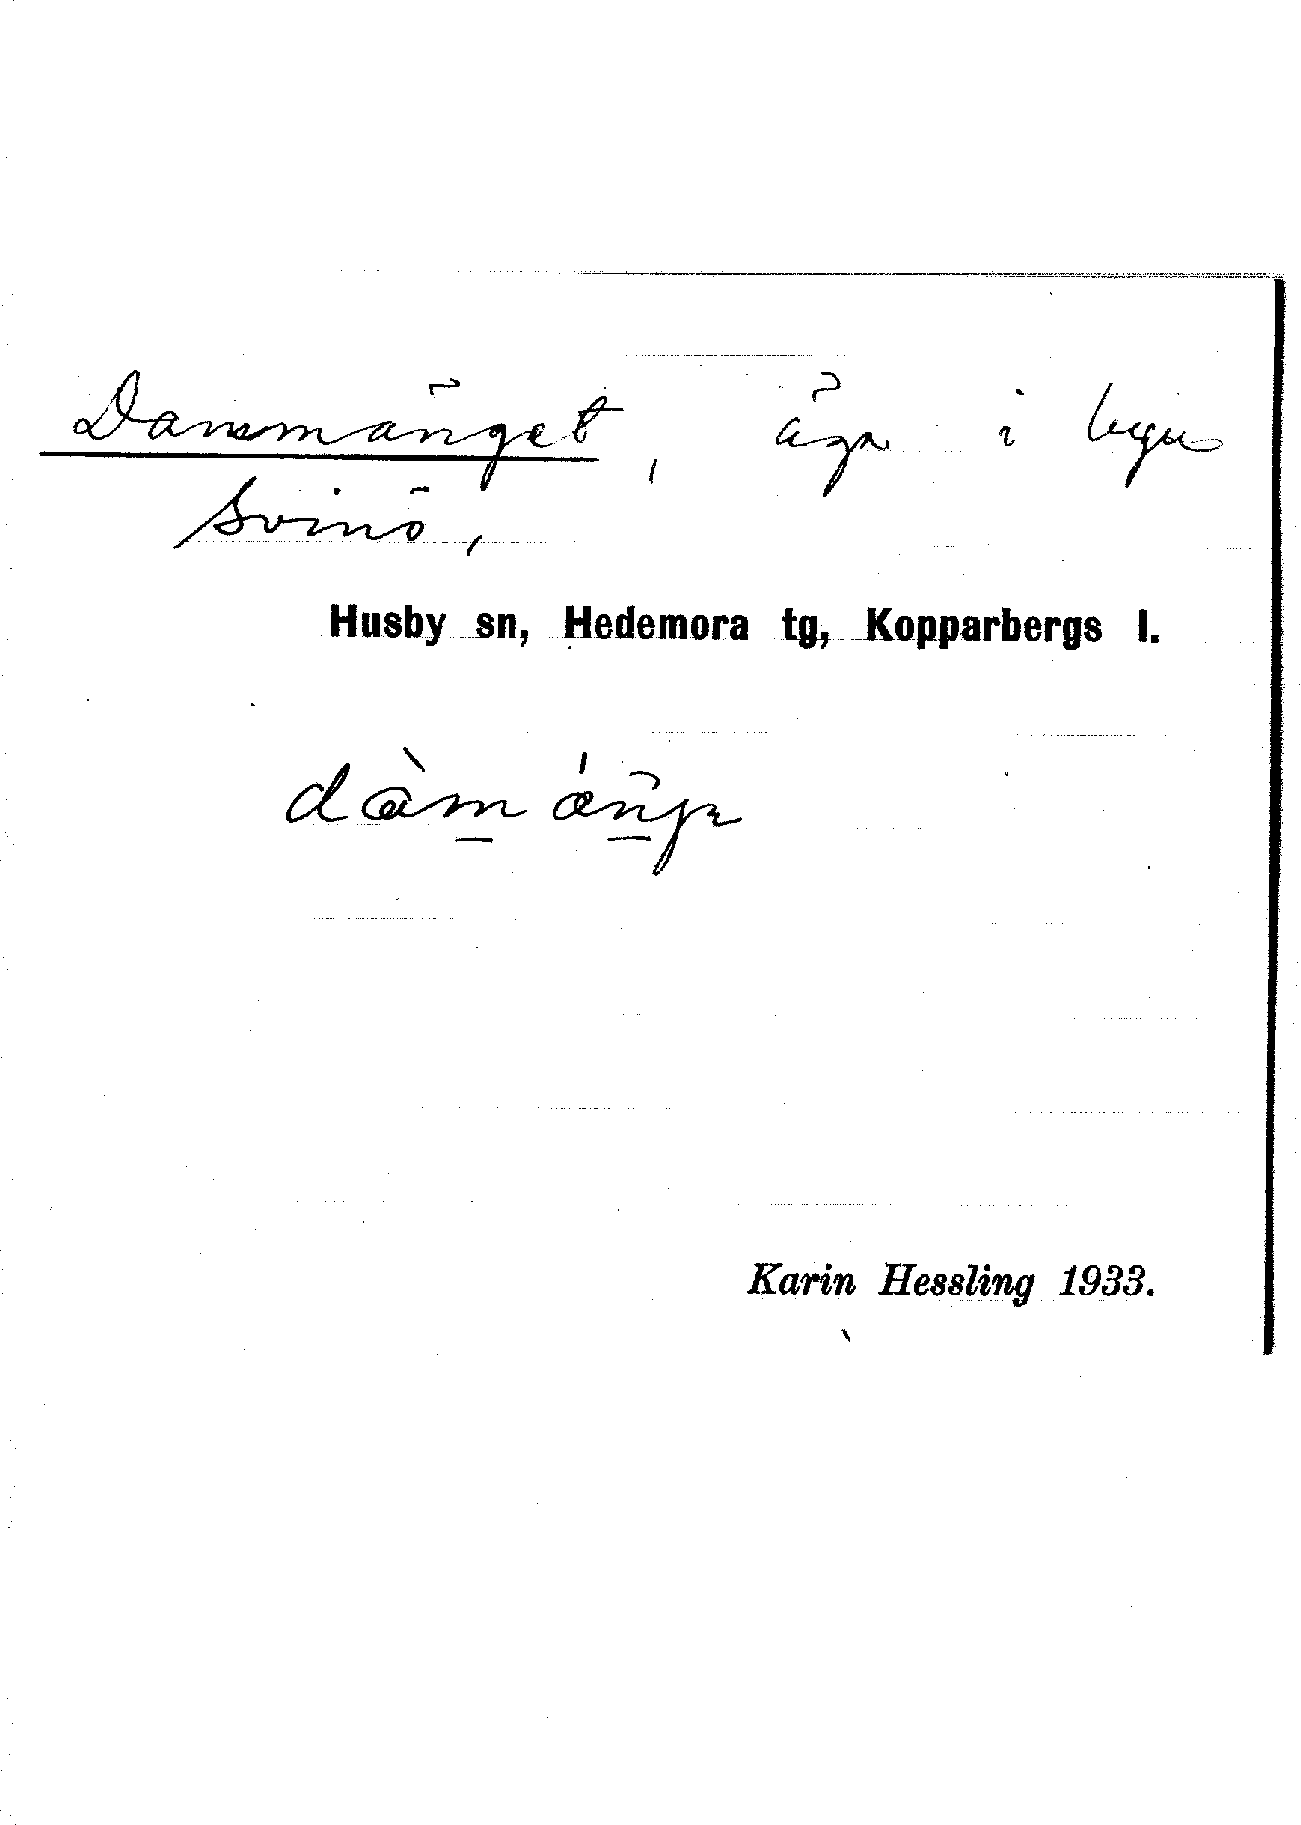 Dammänget, äga i byn
Svinö,
Husby sn, Hedemora tg, Kopparbergs l.
Karin Hessling 1933.